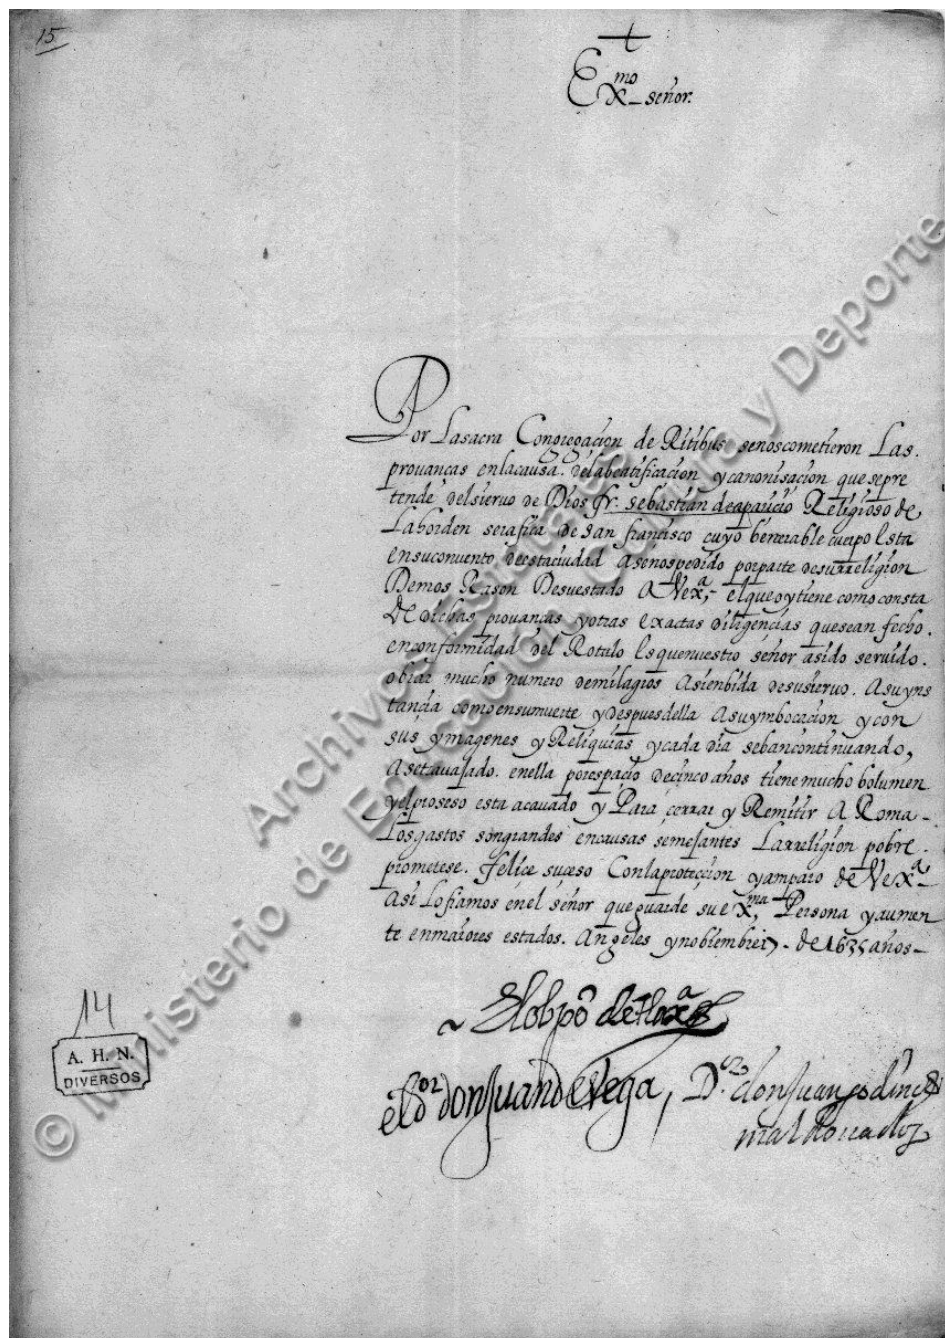 15
+
Ex.mo señor.
Por La sacra Congregacion de Ritibus se nos cometieron Las
provanças en la causa. de la beatificacion y canonisacion que se pre
tende del siervo de Dios fr. sebastian de aparicio Religioso de
La horden serafica de san francisco cuyo benerable cuerpo Esta
en su convento de esta ciudad a se nos pedido por parte de su rreligion
Demos Rason Des u estado A V ex.a, el que oy tiene como consta
De dichas provanças y otras exactas diligencias que se an fecho.
en conformidad del Rotulo Es que nuestro señor a sido servido.
obrar mucho numero de milagros Asi en bida de su siervo. A su yns
tancia como en su muerte y Despues della A su ymbocacion y con
sus ymagenes y Reliquias, y cada dia se ban continuando,
A se travajado. en ella por espacio de cinco años tiene mucho bolumen
y el proseso esta acavado y Para cerrar y Remitir A Roma_
Los gastos son grandes en causas semejantes La rreligion pobre.
prometese. felice suceso Con la proteccion y amparo de V ex.a_
Asi Lo fiamos en el señor que guarde su ex.ma, Persona y aumen
te en maiores estados. Angeles y nobiembre 7. de 1635 años_
El obpo de tlax.a
el d.or don Juan de Vega, D.or don Juan godinez
maldonado
14
A. H. N.
DIVERSOS
© Ministerio de Educación, Cultura y Deporte
Archivos Estatales